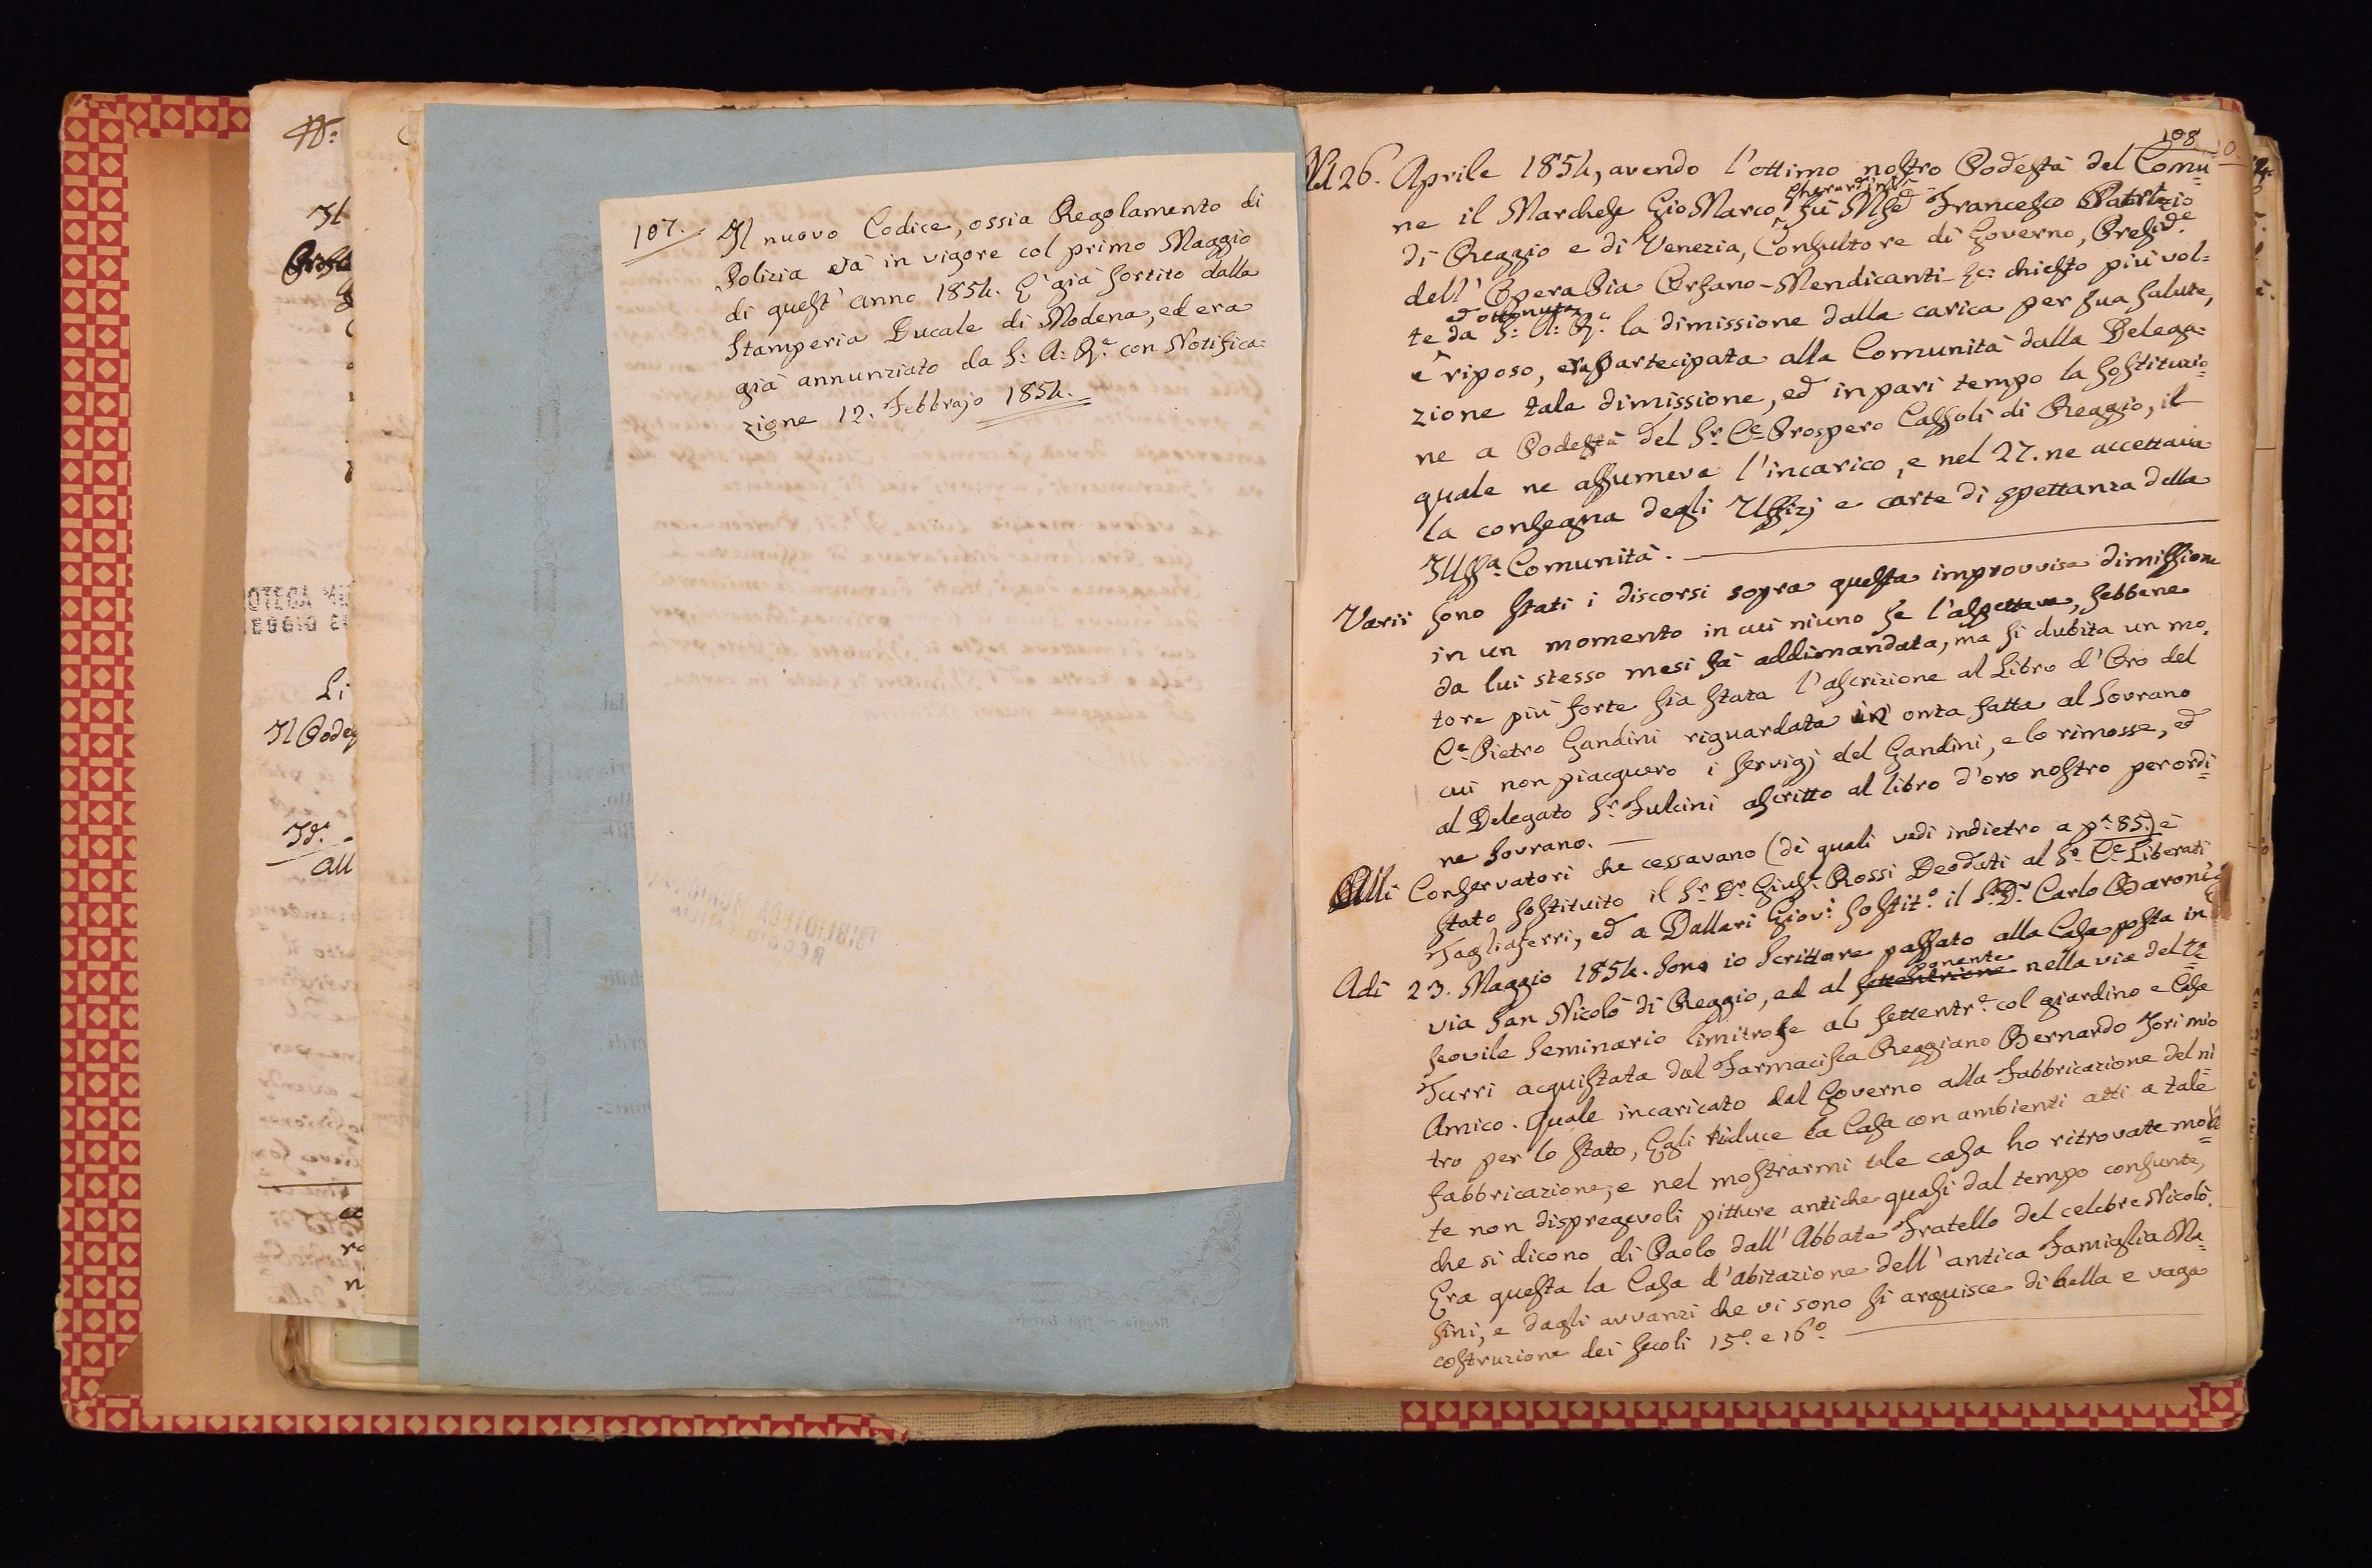 107. Il nuovo Codice, ossia Regolamento di
Polizia và in vigore col primo Maggio
di quest'anno 1854. E' già sortito dalla
Stamperia Ducale di Modena, ed era
già annunziato da S: A: R.e con Notifica:
zione 12. Febbrajo 1854.
108
Nel 26. Aprile 1854, avendo l'ottimo nostro Podestà del Comu=
ne il Marchese Gio Marco Gherardini fù Msẽ Francesco Patrizio
di Reggio e di Venezia, Consultore di Governo, Presid.e
dell'Opera Pia Orfano-Mendicanti &c: chiesto più vol=
te ed ottenuta da S: A: R.e la dimissione dalla carica per sua salute,
e riposo, era partecipata alla Comunità dalla Delega=
zione tale dimissione, ed in pari tempo la sostituzio=
ne a Podestà del Sr. Ce. Prospero Cassoli di Reggio, il
quale ne assumeva l'incarico, e nel 27. ne accettava
la consegna degli Uffizj e carte di spettanza della
Illss.a Comunità.
Varii sono stati i discorsi sopra questa improvvisa dimissione
in un momento in cui niuno se l'aspettava, sebbene
da lui stesso mesi fà addimandata, ma si dubita un mo=
tore più forte sia stata l'ascrizione al Libro d'Oro del
Ce. Pietro Gandini riguardata in onta fatta al Sovrano
cui non piacquero i servigj del Gandini, e lo rimosse, ed
al Delegato Sr. Fulcini ascritto al libro d'oro nostro per ordi=
ne Sovrano.
Alli Conservatori che cessavano (dei quali vedi indietro a p.a 85.) è
stato sostituito il Sr. Dr. Gius.e Rossi Deodati al Sr. Ce. Liberati
Tagliaferri, ed a Dallari Giov.i sostit.o il Sr. Dr. Carlo Baroni.
Adì 23. Maggio 1854. Sono io Scrittore passato alla Casa posta in
via San Nicolò di Reggio, ed al settentrione ponente nella via del Ve=
scovile Seminario limitrofe al settentr.e col giardino e Casa
Turri acquistata dal Farmacista Reggiano Bernardo Jori mio
Amico. Quale incaricato dal Governo alla Fabbricazione del ni=
tro per lo Stato, Egli riduce la Casa con ambienti atti a tale
fabbricazione, e nel mostrarmi tale casa ho ritrovate mol=
te non dispregevoli pitture antiche quasi dal tempo consunte,
che si dicono di Paolo dall'Abbate Fratello del celebre Nicolò.
Era questa la Casa d'abitazione dell'antica Famiglia Ma=
sini, e dagli avvanzi che vi sono si arguisce di bella e vaga
costruzione dei secoli 15.o e 16.o